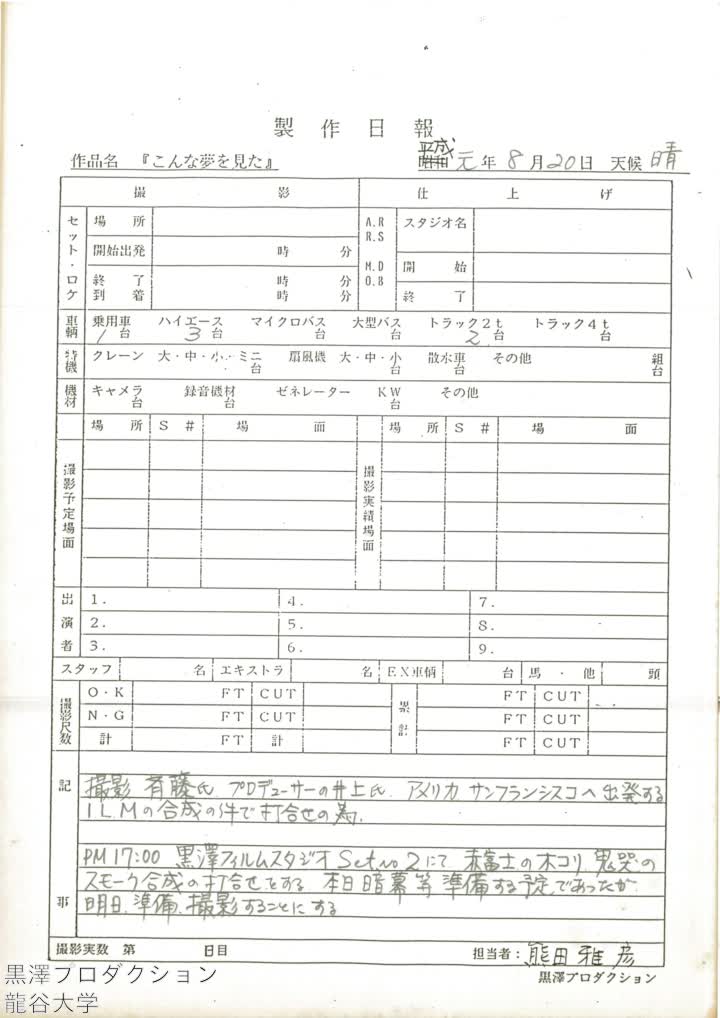 製作日報
作品名 『こんな夢を見た』 平成 元年 8月20日 天候 晴
撮影 仕上げ
セット・ロケ 場所 A.R R.S スタジオ名
開始出発 時 分
M.D O.B 開始
終了 時 分
到着 時 分 終了
車輌 乗用車 1台 ハイエース 3台 マイクロバス 台 大型バス 台 トラック2t 2台 トラック4t 台
特機 クレーン 大・中・小・ミニ 台 扇風機 大・中・小 台 散水車 台 その他 組 台
機材 キャメラ 台 録音機材 台 ゼネレーター KW 台 その他
場所 S# 場面 場所 S# 場面
撮影予定場面 撮影実績場面
出演者 1. 4. 7.
2. 5. 8.
3. 6. 9.
スタッフ 名 エキストラ 名 EX車輌 台 馬・他 頭
撮影尺数 O・K FT CUT 累計 FT CUT
N・G FT CUT FT CUT
計 FT 計 FT CUT
記事
撮影 斉藤氏 プロデューサーの井上氏 アメリカ サンフランシスコへ出発する
I.L.Mの合成の件で打合せの為.
PM 17:00 黒澤フィルムスタジオ Set no 2にて 赤富士の木コリ 鬼哭の
スモーク合成の打合せをする 本日暗幕等準備する予定であったが
明日、準備、撮影することにする
撮影実数 第 日目 担当者: 熊田雅彦
黒澤プロダクション
黒澤プロダクション
龍谷大学